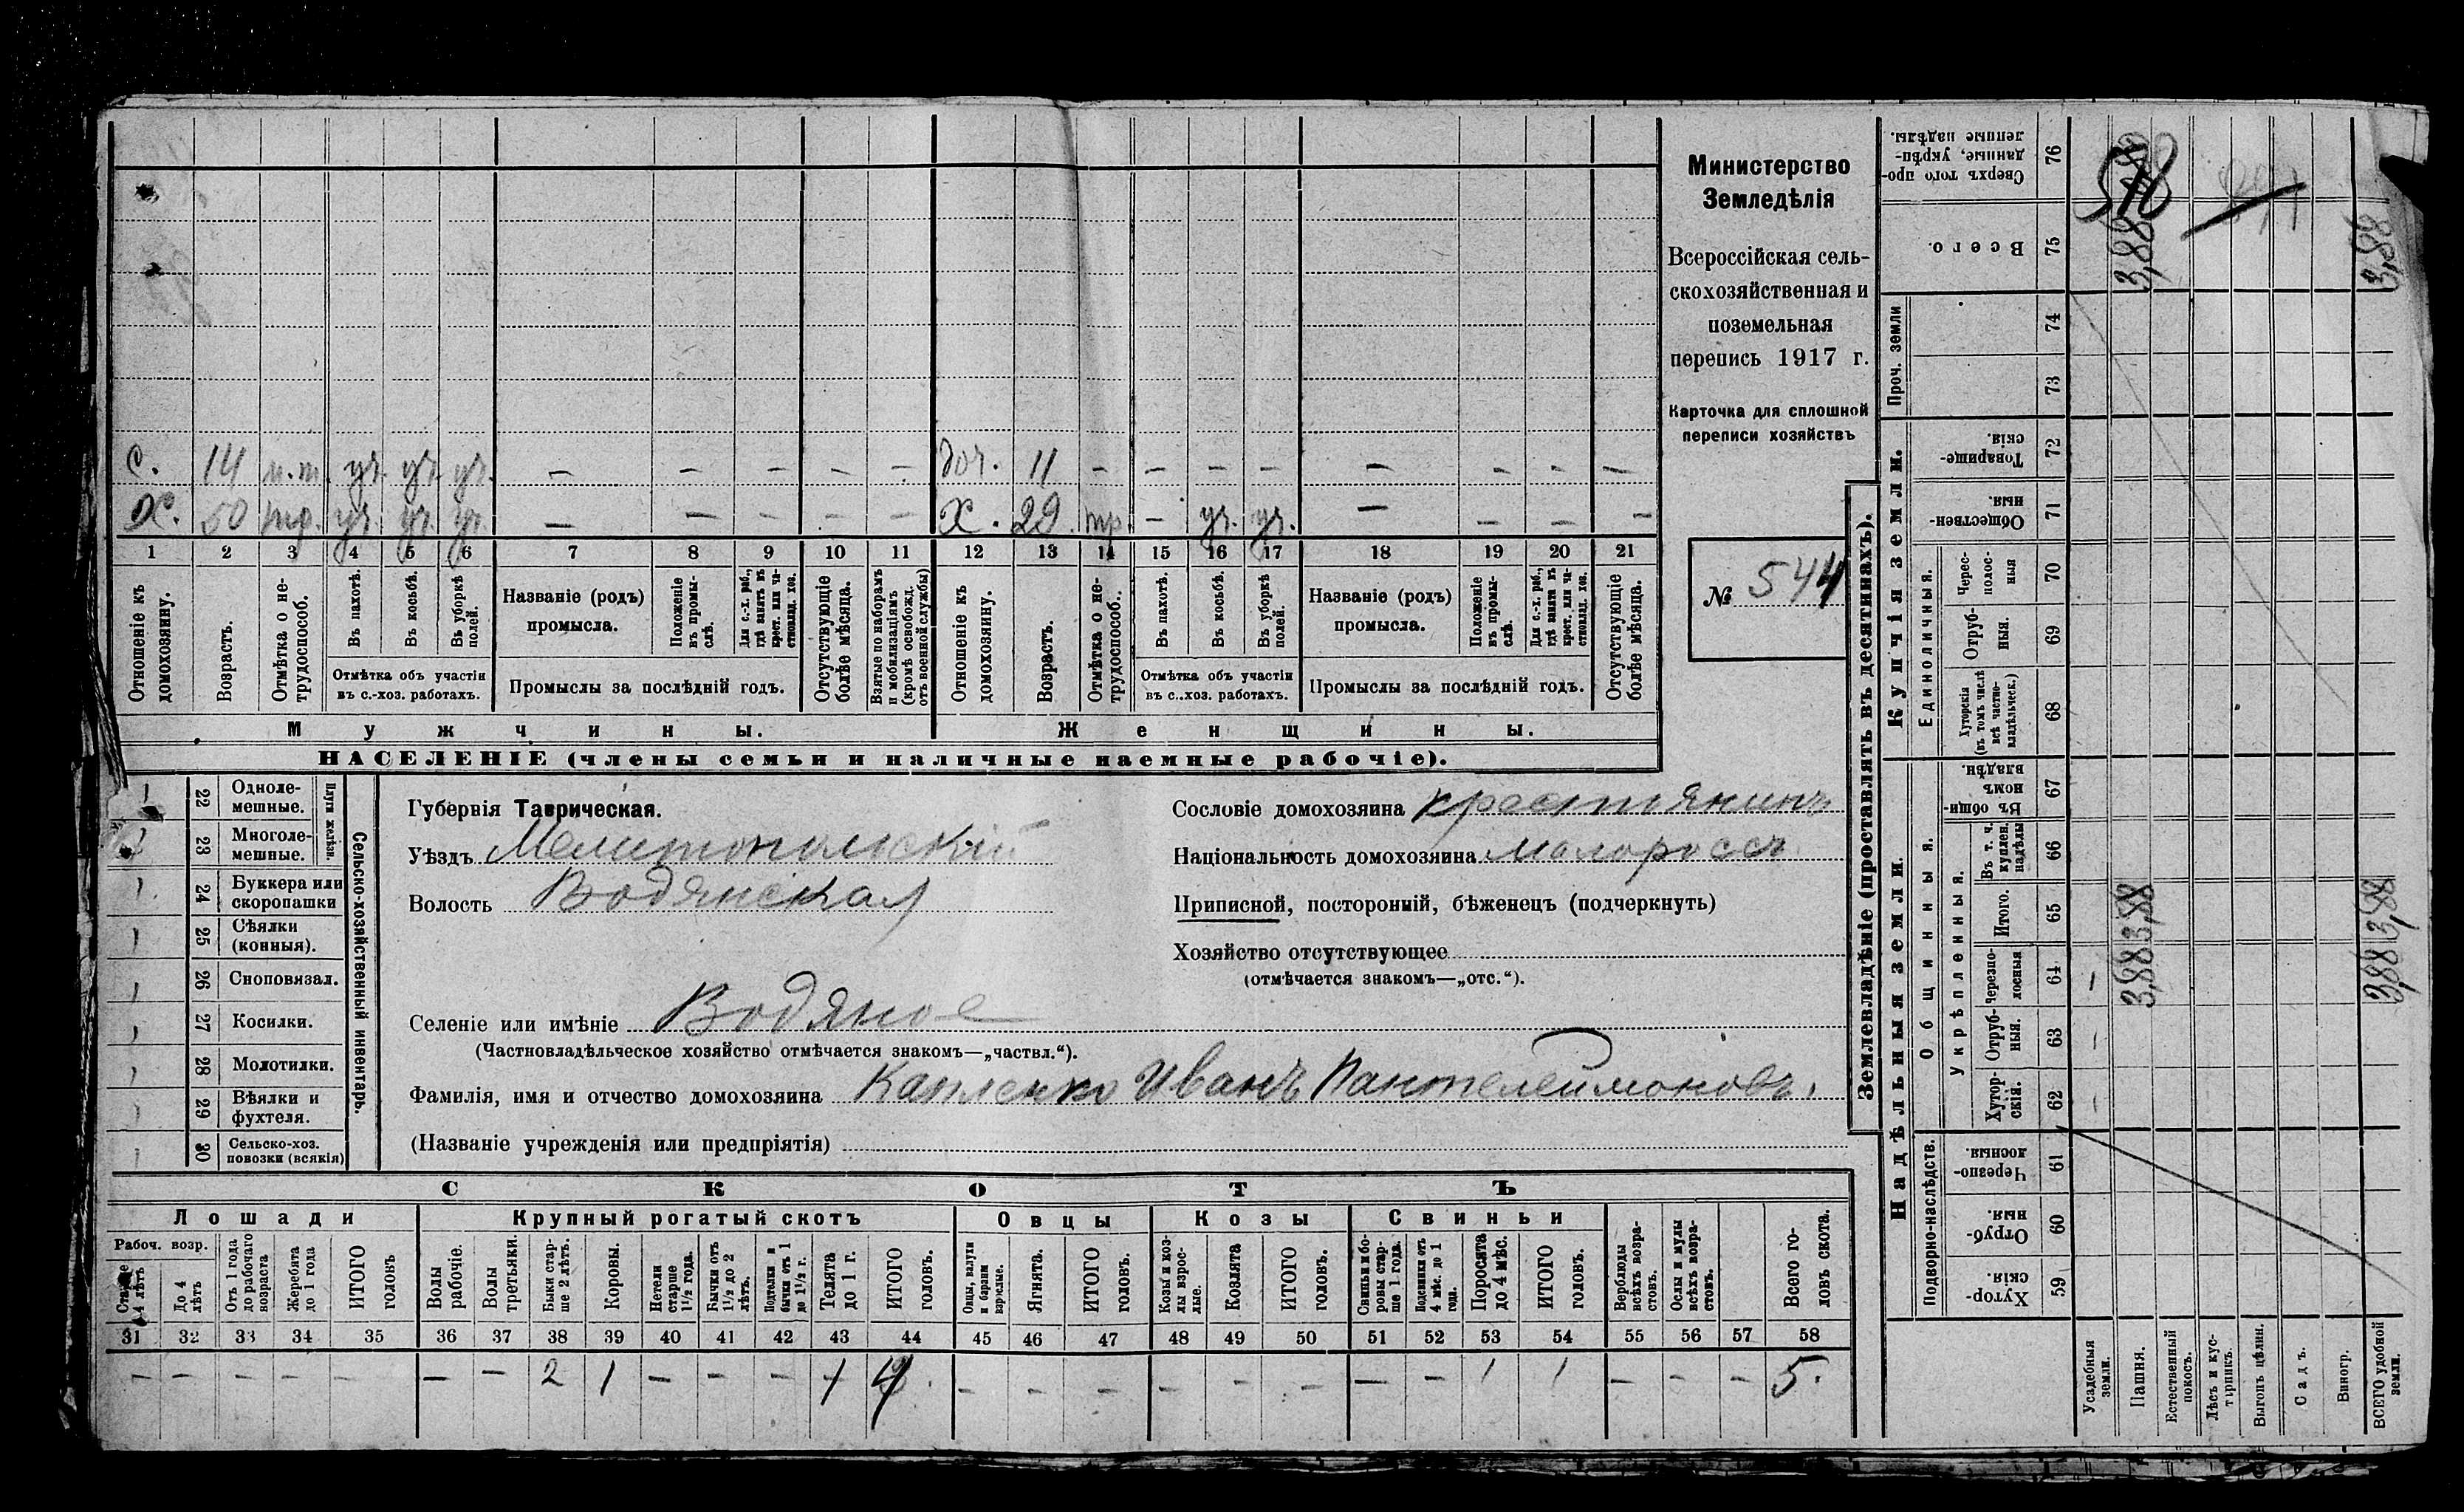 с. 14 п.т. уч. уч. уч. — — — — — доч. 11 — — — — — — — —
Х. 50 тр. уч. уч. уч. — — — — — Х. 29. тр. — уч. уч. — — — —
1 2 3 4 5 6 7 8 9 10 11 12 13 14 15 16 17 18 19 20 21
Отношеніе къ домохозяину.
Возрастъ.
Отмѣтка о не-трудоспособ.
Въ пахотѣ.
Въ косьбѣ.
Въ уборкѣ полей.
Отмѣтка объ участіи
въ с.-хоз. работахъ.
Названіе (родъ)
промысла.
Положеніе въ промы-слѣ.
Для с.-х. раб., гдѣ занятъ въ крест. или ча-стновлад. хоз.
Промыслы за послѣдній годъ.
Отсутствующіе болѣе мѣсяца.
Взятые по наборамъ и мобилизаціямъ (кромѣ освобожд. отъ военной службы)
Отношеніе къ домохозяину.
Возрастъ.
Отмѣтка о не-трудоспособ..
Въ пахотѣ.
Въ косьбѣ.
Въ уборкѣ полей.
Отмѣтка объ участіи
въ с..хоз. работахъ.
Названіе (родъ)
промысла.
Положеніе въ промы-слѣ.
Для с.-х. раб., гдѣ занята въ крест. или ча-стновлад. хоз.
Промыслы за послѣдній годъ.
Отсутствующіе болѣе мѣсяца.
Мужчины.
Женщины.
НАСЕЛЕНІЕ (члены семьи и наличные наемные рабочіе).
Министерство
Земледѣлія
Всероссійская сель-
скохозяйственная и
поземельная
перепись 1917 г.
Карточка для сплошной
переписи хозяйствъ
№ 544
Сельско-хозяйственный инвентарь.
Плуги желѣзн.
22 Одноле-
мешные.
23 Многоле-
мешные.
24 Буккера или
скоропашки
25 Сѣялки
(конныя).
26 Сноповязал.
27 Косилки.
28 Молотилки.
29 Вѣялки и
фухтеля.
30 Сельско-хоз.
повозки (всякія)
Губернія Таврическая.
Уѣздъ Мелитопольскій
Волость Водянская
Селеніе или имѣніе Водяное
(Частновладѣльческое хозяйство отмѣчается знакомъ—„частвл.“).
Фамилія, имя и отчество домохозяина Капленко Иванъ Пантелеймоновъ.
(Названіе учрежденія или предпріятія)
Сословіе домохозяина крестьянинъ
Національность домохозяина малороссъ
Приписной, посторонній, бѣженецъ (подчеркнуть)
Хозяйство отсутствующее
(отмѣчается знакомъ—„отс.“).
СКОТЪ
Лошади Крупный рогатый скотъ Овцы Козы Свиньи
Рабоч. возр.
Старше 4 лѣтъ
До 4 лѣтъ
Отъ 1 года до рабочаго возраста
Жеребята до 1 года
ИТОГО головъ
Волы рабочіе.
Волы третьяки.
Быки стар-ше 2 лѣтъ.
Коровы.
Нетели старше 1½ года.
Бычки отъ 1½ до 2 лѣтъ.
Подтелки и бычки отъ 1 до 1½ г.
Телята до 1 г.
ИТОГО головъ.
Овцы, валухи и бараны взрослые.
Ягнята.
ИТОГО головъ.
Козы и коз-лы взрос-лые.
Козлята
ИТОГО головъ.
Свиньи и бо-ровы стар-ше 1 года.
Подсвинки отъ 4 мѣс. до 1 года.
Поросята до 4 мѣс.
ИТОГО головъ.
Верблюды всѣхъ возра-стовъ.
Ослы и мулы всѣхъ возра-стовъ.
Всего го-ловъ скота.
31 32 33 34 35 36 37 38 39 40 41 42 43 44 45 46 47 48 49 50 51 52 53 54 55 56 57 58
— — — — — — — 2 1 — — — 1 4 — — — — — — — — 1 1 — — — 5.
Землевладѣніе (проставлять въ десятинахъ).
Купчія земли.
Надѣльныя земли.
Проч. земли
Единоличныя.
Общинныя.
Укрѣпленныя.
Подворно-наслѣдств.
Сверхъ того про-данные, укрѣп-ленные надѣлы. 76
Всего. 75 3,88 3,88
74
73
Товарище-скія. 72
Обществен-ныя. 71
Черес-полос-ныя 70
Отруб-ныя. 69
Хуторскія (въ томъ числѣ всѣ частно-владѣльческ.) 68
Въ общи-номъ владѣн. 67
Въ т. ч. куплен. надѣлы 66
Итого. 65 3,88 3,88
Черезпо-лосныя 64 3,88 3,88
Отруб-ныя. 63
Хутор-скія. 62
Черезпо-лосныя. 61
Отруб-ныя. 60
Хутор-скія. 59
Усадебныя земли.
Пашня.
Естественный покосъ.
Лѣсъ и кус-тарникъ.
Выгонъ цѣлин.
Садъ.
Виногр.
ВСЕГО удобной земли.